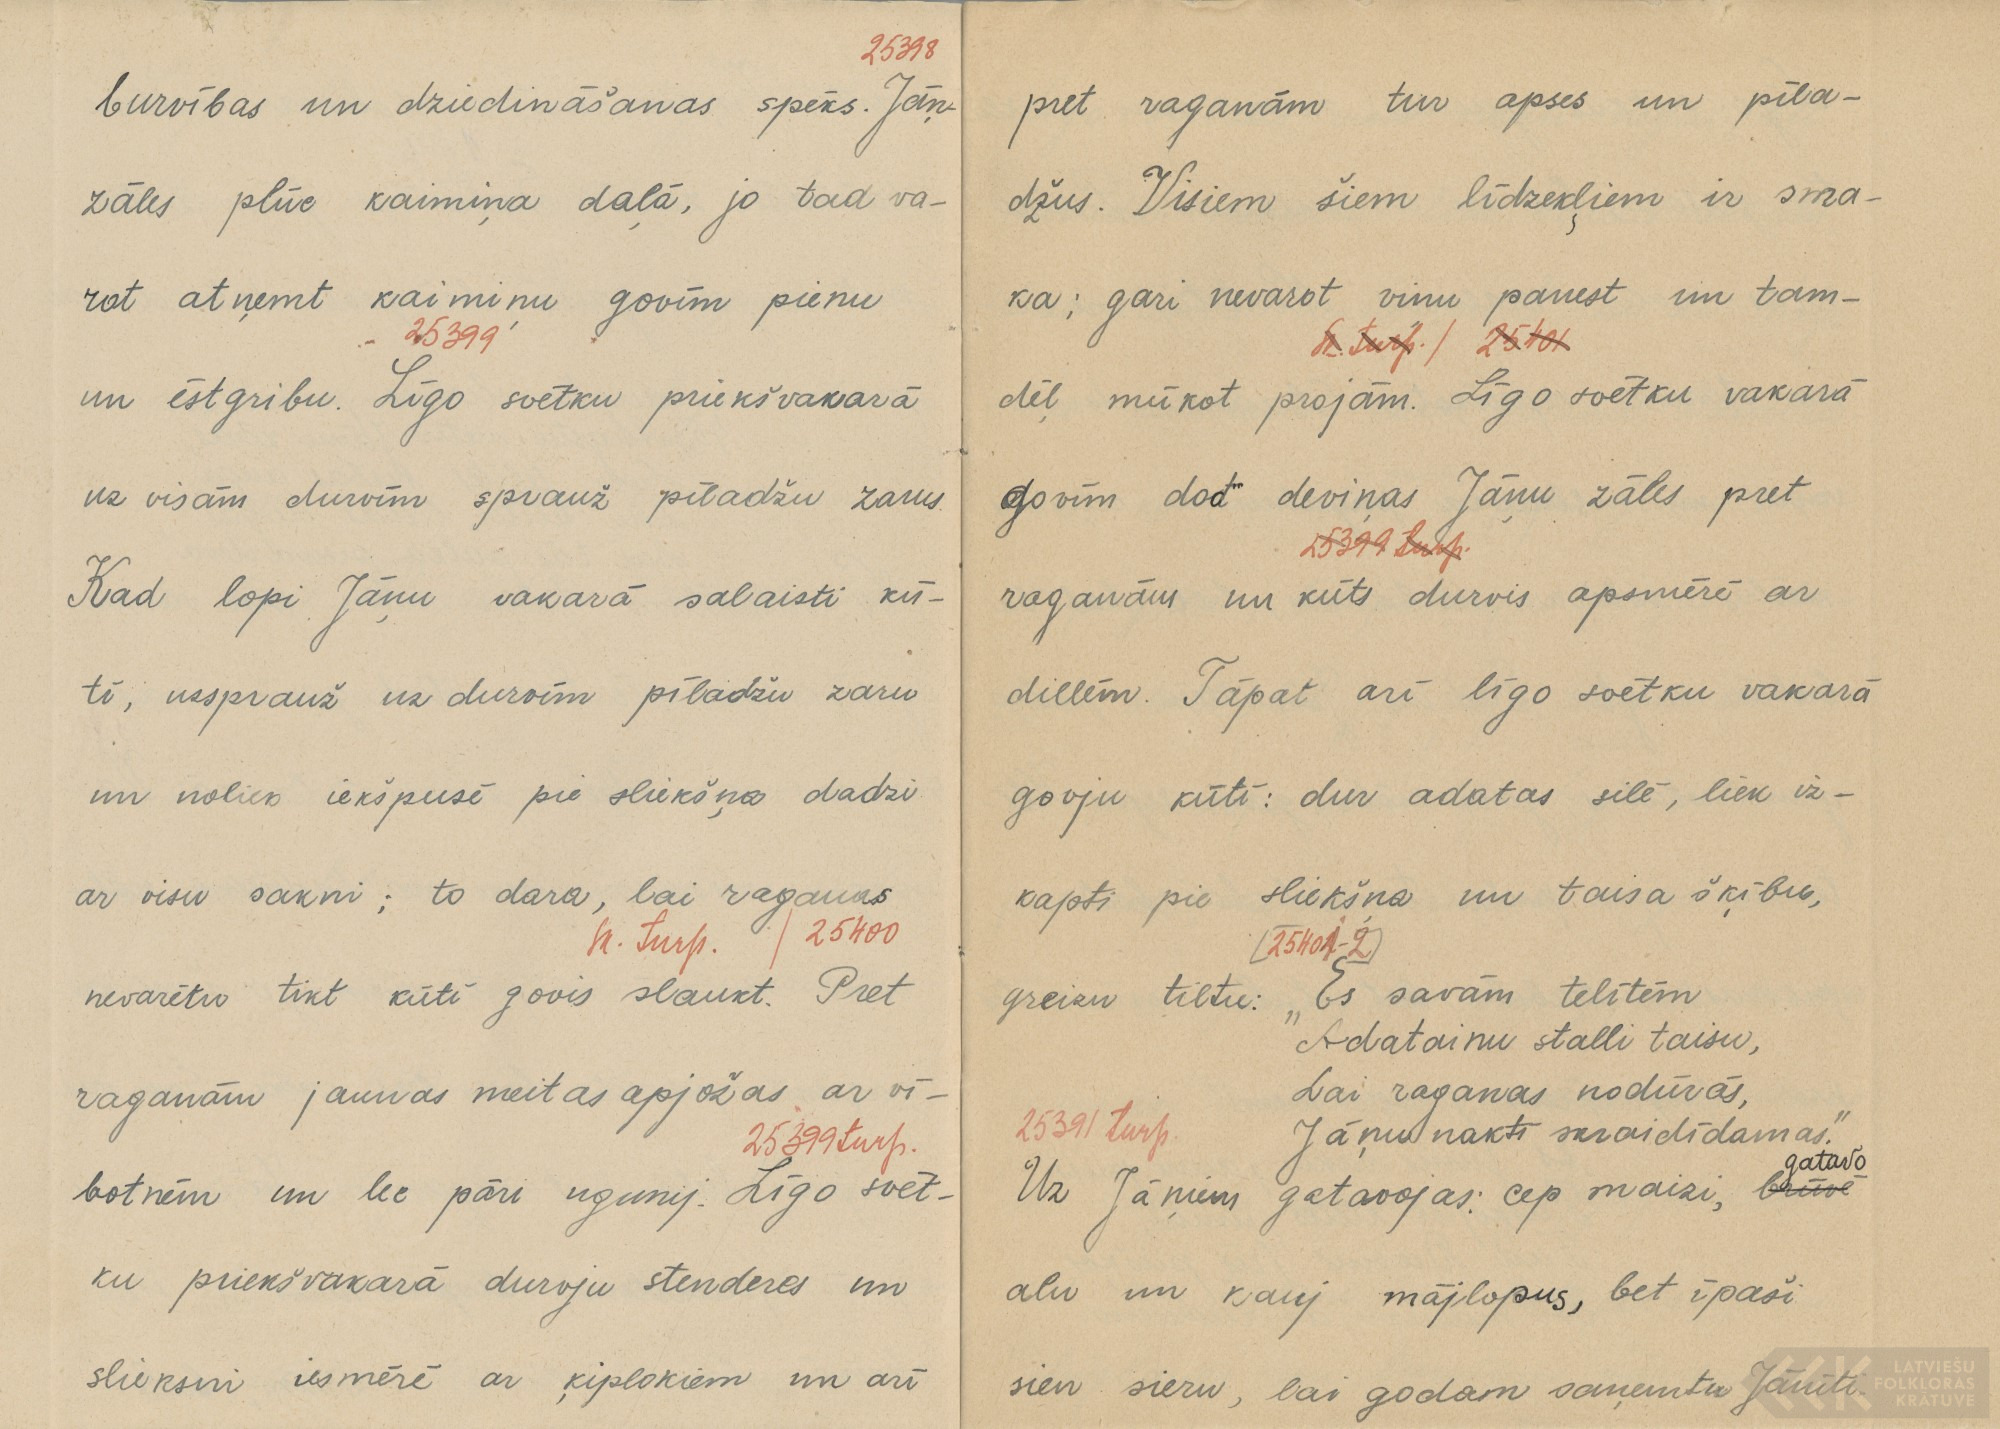 25398
burvības un dziedināšanas spēks. Jāņ-
zāles plūc kaimiņa daļā, jo tad va-
rot atņemt kaimiņu govīm pienu
25399
un ēstgribu. Līgo svētku priekšvakarā
uz visām durvīm sprauž pīladžu zarus.
Kad lopi Jāņu vakarā salaisti kū-
tī, uzsprauž uz durvīm pīladžu zaru
un noliek iekšpusē pie sliekšņa dadzi
ar visu sakni; to dara, lai raganas
sk. turp. / 25400
nevarētu tikt kūtī govis slaukt. Pret
raganām jaunas meitas apjožas ar vī-
25399 turp.
botnēm un lec pāri ugunij. Līgo svēt-
ku priekšvakarā durvju stenderes un
slieksni iesmērē ar ķiplokiem un arī
pret raganām tur apses un pīla-
džus. Visiem šiem līdzekļiem ir sma-
ka; gari nevarot viņu panest un tam-
sk. turp. / 25401
dēļ mūkot projām. Līgo svētku vakarā
govīm dod deviņas Jāņu zāles pret
25399 turp.
raganām un kūts durvis apsmērē ar
dillēm. Tāpat arī līgo svētku vakarā
govju kūtī: dur adatas silē, liek iz-
kapti pie sliekšņa un taisa šķību,
[25401-2]
greizu tiltu: „Es savām telītēm
Adatainu stalli taisu,
Lai raganas nodūrās,
25391 turp. Jāņu naktī skraidīdamas."
gatavo
Uz Jāņiem gatavojas: cep maizi, brūvē
alu un kauj mājlopus, bet īpaši
sien sieru, lai godam saņemtu Jānīti.
LATVIEŠU
FOLKLORAS
KRĀTUVE